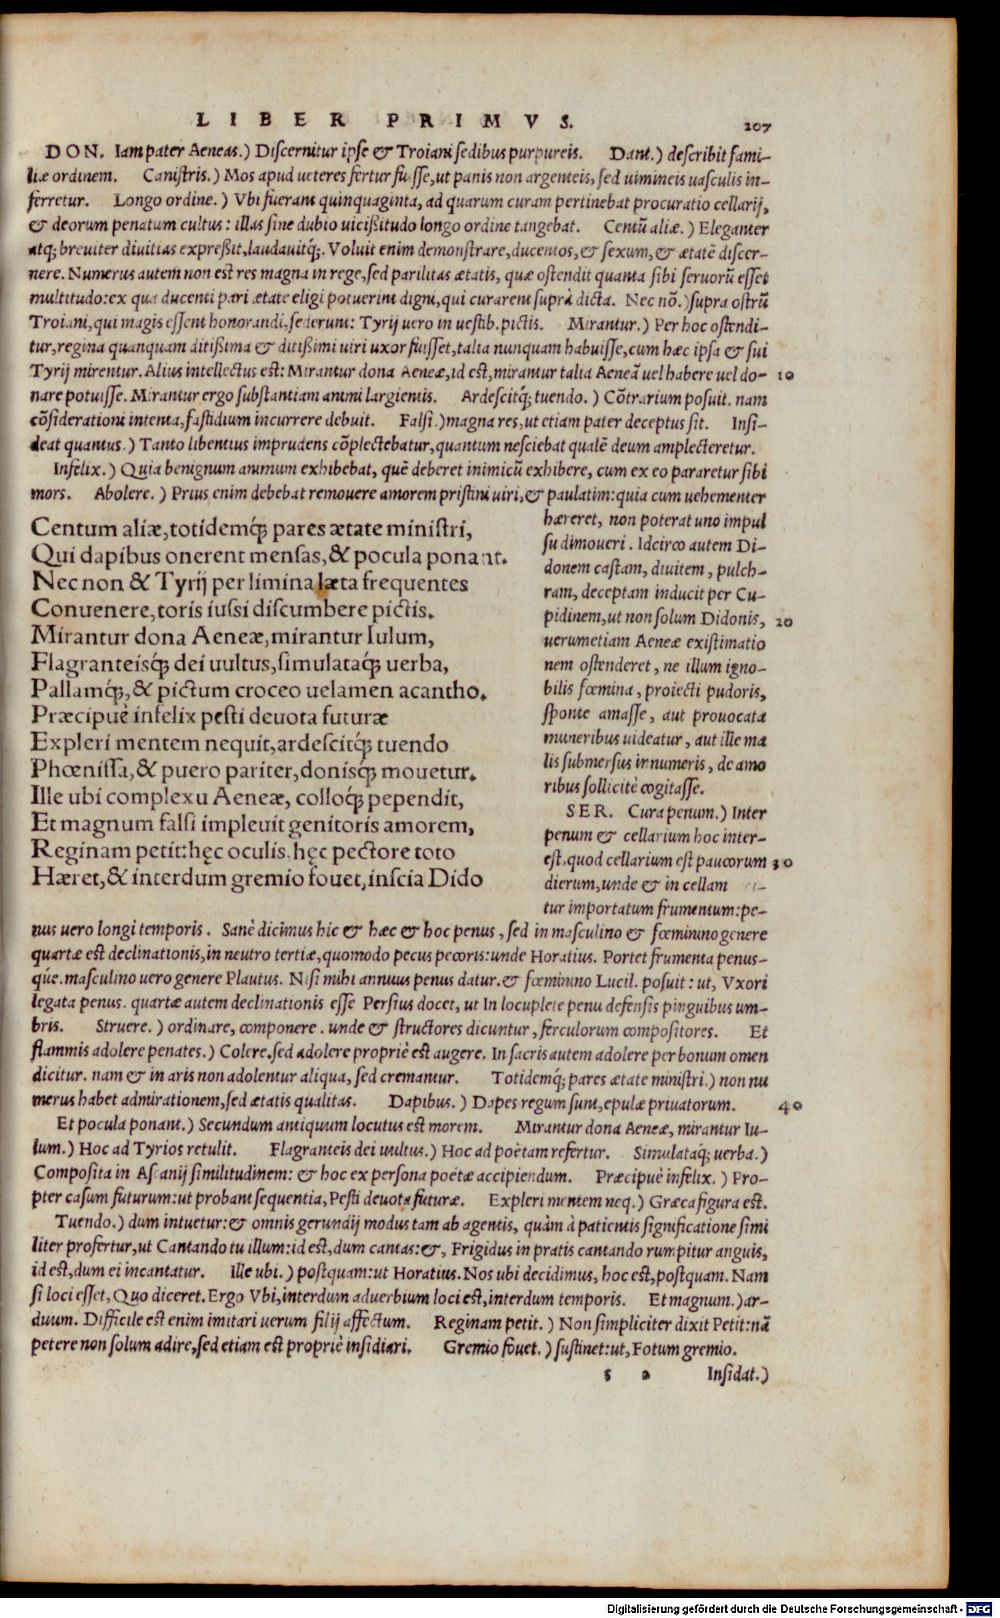 LIBER PRIMVS. 207
DON. Iam pater Aeneas.) Discernitur ipse & Troiani sedibus purpureis. Dant.) describit fami-
liæ ordinem. Canistris.) Mos apud ueteres fertur fuisse, ut panis non argenteis, sed uimineis uasculis in-
ferretur. Longo ordine.) Vbi fuerant quinquaginta, ad quarum curam pertinebat procuratio cellarij,
& deorum penatum cultus: illas sine dubio uicißitudo longo ordine tangebat. Centū aliæ.) Eleganter
atq; breuiter diuitias expreßit, laudauitq́;. Voluit enim demonstrare, ducentos, & sexum, & ætatē discer-
nere. Numerus autem non est res magna in rege, sed parilitas ætatis, quæ ostendit quanta sibi seruorū esset
multitudo: ex qua ducenti pari ætate eligi potuerint digni, qui curarent suprà dicta. Nec nō.) supra ostrū
Troiani, qui magis essent honorandi, sederunt: Tyrij uero in uestib. pictis. Mirantur.) Per hoc ostendi-
tur, regina quanquam ditißima & ditißimi uiri uxor fuisset, talia nunquam habuisse, cum hæc ipsa & sui
Tyrij mirentur. Alius intellectus est: Mirantur dona Aeneæ, id est, mirantur talia Aeneā uel habere uel do- 10
nare potuisse. Mirantur ergo substantiam animi largientis. Ardescitq́; tuendo.) Cōtrarium posuit. nam
cōsiderationi intenta, fastidium incurrere debuit. Falsi.) magna res, ut etiam pater deceptus sit. Insi-
deat quantus.) Tanto libentius imprudens cōplectebatur, quantum nesciebat qualē deum amplecteretur.
Infelix.) Quia benignum animum exhibebat, quē deberet inimicū exhibere, cum ex eo pararetur sibi
mors. Abolere.) Prius enim debebat remouere amorem pristini uiri, & paulatim: quia cum uehementer
Centum aliæ, totidemq́; pares ætate ministri,
Qui dapibus onerent mensas, & pocula ponant.
Nec non & Tyrij per limina læta frequentes
Conuenere, toris iussi discumbere pictis.
Mirantur dona Aeneæ, mirantur Iulum,
Flagranteisq́; dei uultus, simulataq́; uerba,
Pallamq́;, & pictum croceo uelamen acantho.
Præcipuè infelix pesti deuota futuræ
Expleri mentem nequit, ardescitq́; tuendo
Phœnissa, & puero pariter, donisq́; mouetur.
Ille ubi complexu Aeneæ, colloq́; pependit,
Et magnum falsi impleuit genitoris amorem,
Reginam petit: hęc oculis, hęc pectore toto
Hæret, & interdum gremio fouet, inscia Dido
hæreret, non poterat uno impul
su dimoueri. Idcirco autem Di-
donem castam, diuitem, pulch-
ram, deceptam inducit per Cu-
pidinem, ut non solum Didonis, 20
uerumetiam Aeneæ existimatio
nem ostenderet, ne illum igno-
bilis fœmina, proiecti pudoris,
sponte amasse, aut prouocata
muneribus uideatur, aut ille ma
lis submersus innumeris, de amo
ribus sollicitè cogitasse.
SER. Cura penum.) Inter
penum & cellarium hoc inter-
est, quod cellarium est paucorum 30
dierum, unde & in cellam
tur importatum frumentum: pe-
nus uero longi temporis. Sanè dicimus hic & hæc & hoc penus, sed in masculino & fœminino genere
quartæ est declinationis, in neutro tertiæ, quomodo pecus pecoris: unde Horatius. Portet frumenta penus-
q́ue. masculino uero genere Plautus. Nisi mihi annuus penus datur. & fœminino Lucil. posuit: ut, Vxori
legata penus. quartæ autem declinationis esse Persius docet, ut In locuplete penu defensis pinguibus um-
bris. Struere.) ordinare, componere. unde & structores dicuntur, ferculorum compositores. Et
flammis adolere penates.) Colere. sed adolere propriè est augere. In sacris autem adolere per bonum omen
dicitur. nam & in aris non adolentur aliqua, sed cremantur. Totidemq́; pares ætate ministri.) non nu
merus habet admirationem, sed ætatis qualitas. Dapibus.) Dapes regum sunt, epulæ priuatorum. 40
Et pocula ponant.) Secundum antiquum locutus est morem. Mirantur dona Aeneæ, mirantur Iu-
lum.) Hoc ad Tyrios retulit. Flagranteis dei uultus.) Hoc ad poëtam refertur. Simulataq́; uerba.)
Composita in Ascanij similitudinem: & hoc ex persona poëtæ accipiendum. Præcipuè infelix.) Pro-
pter casum futurum: ut probant sequentia, Pesti deuota futuræ. Expleri mentem neq.) Græca figura est.
Tuendo.) dum intuetur: & omnis gerundij modus tam ab agentis, quàm à patientis significatione simi
liter profertur, ut Cantando tu illum: id est, dum cantas: &, Frigidus in pratis cantando rumpitur anguis,
id est, dum ei incantatur. Ille ubi.) postquam: ut Horatius. Nos ubi decidimus, hoc est, postquam. Nam
si loci esset, Quo diceret. Ergo Vbi, interdum aduerbium loci est, interdum temporis. Et magnum.) ar-
duum. Difficile est enim imitari uerum filij affectum. Reginam petit.) Non simpliciter dixit Petit: nā
petere non solum adire, sed etiam est propriè insidiari. Gremio fouet.) sustinet: ut, Fotum gremio.
s 2 Insidat.)
Digitalisierung gefördert durch die Deutsche Forschungsgemeinschaft - DFG